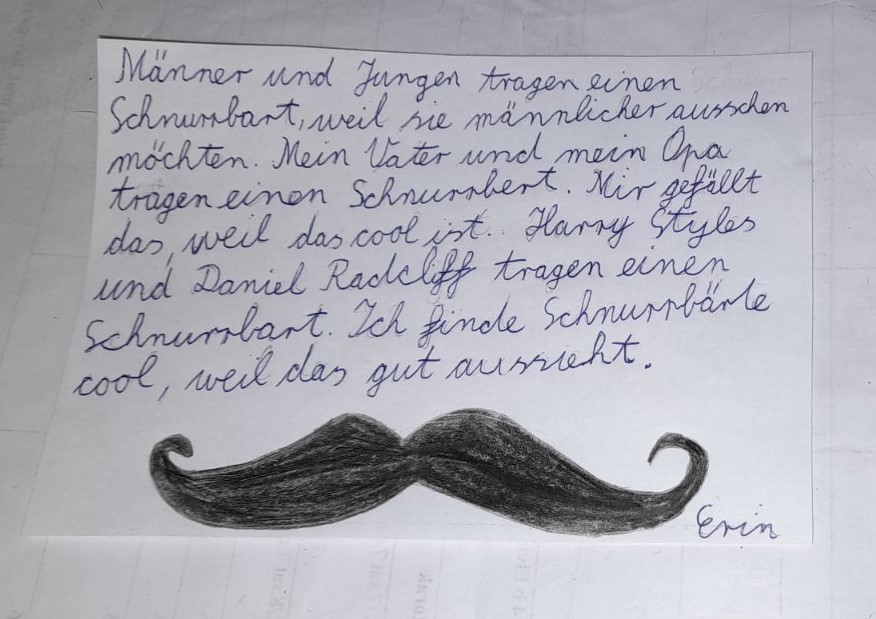 Männer und Jungen tragen einen
Schnurrbart, weil sie männlicher aussehen
möchten. Mein Vater und mein Opa
tragen einen Schnurrbert. Mir gefällt
das, weil das cool ist. Harry Styles
und Daniel Radcliff tragen einen
Schnurrbart. Ich finde Schnurrbärte
cool, weil das gut aussieht.
Erin